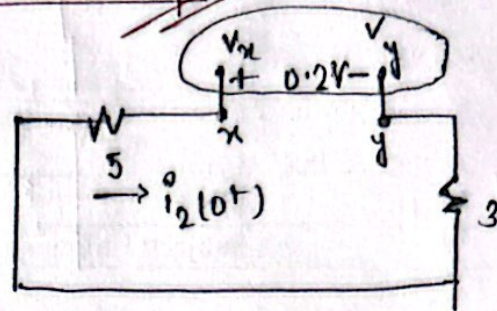 Vx Vy
+ 0.2V -
x y
5
i2(0+)
3